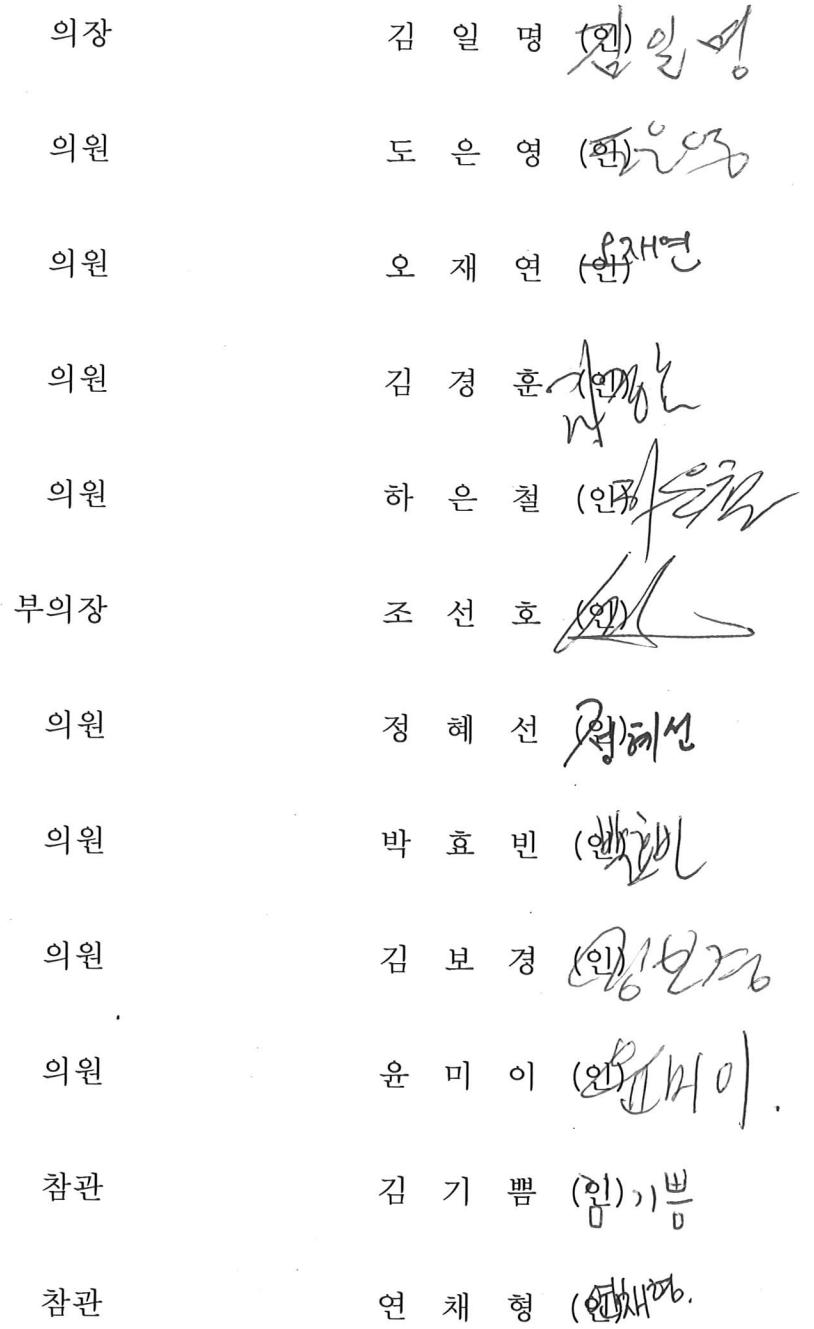 의장 김 일 명 (인) 김일명
의원 도 은 영 (인) 도은영
의원 오 재 연 (인) 오재연
의원 김 경 훈 (인)
의원 하 은 철 (인) 하은철
부의장 조 선 호 (인)
의원 정 혜 선 (인) 정혜선
의원 박 효 빈 (인) 박효빈
의원 김 보 경 (인) 김보경
의원 윤 미 이 (인) 윤미이
참관 김 기 쁨 (인) 김기쁨
참관 연 채 형 (인) 연채형